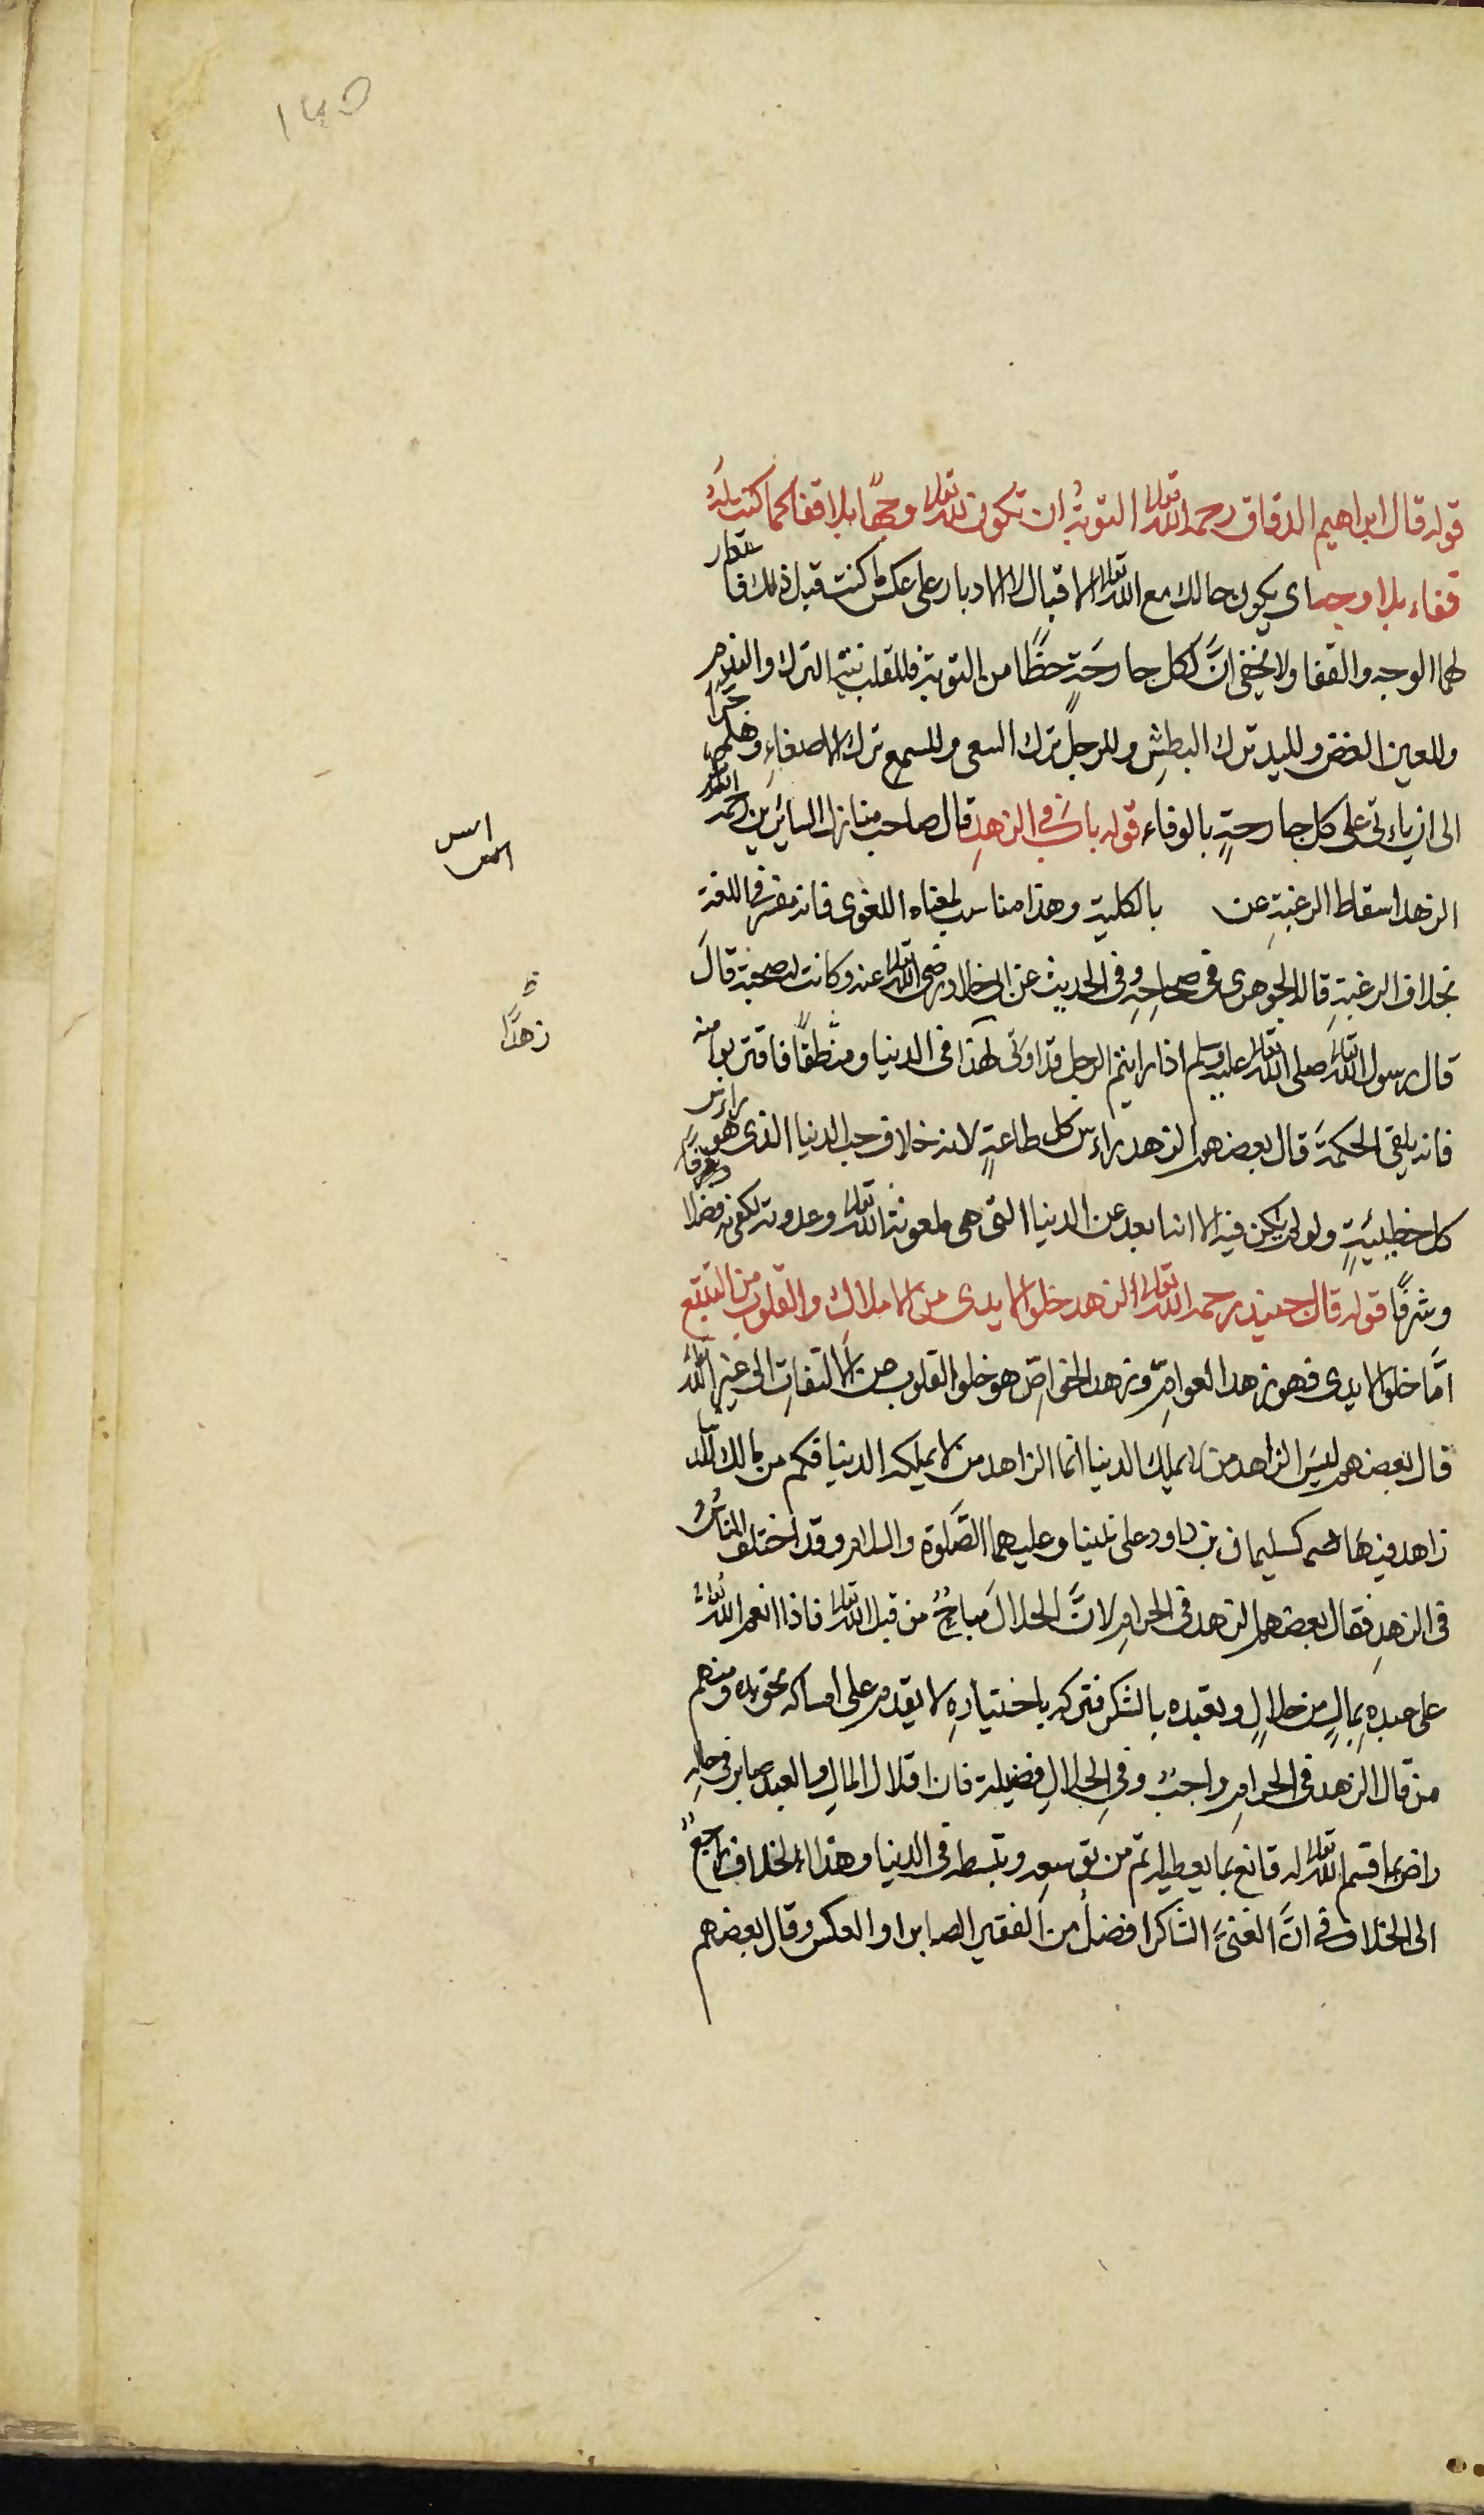 ١٤٥
قوله قال ابراهيم الدقاق رحمه الله تعالى التوبةُ ان تكون لله تعالى وجهًا بلا قفا كما كنت لهُ
قفاء بلا وجه اى يكون حالك مع الله تعالى الاقبال لا الادبار على عكس ما كنت قبل ذلك فاستعار
لهما الوجه والقفا ولا يخفى انَّ لكل جارحَةٍ حظًّا من التوبة فللقلب نية الترك والندم
وللعين الغض ولليد ترك البطشِ وللرجل ترك السعى وللسمع ترك الاصغاءِ وهلم جرًّا
الى ان ياءتى على كل جارحةٍ بالوفاء قوله بابٌ فى الزهدِ قال صاحب منازل السائرين رحمه الله
الزهد اسقاط الرغبةِ عن بالكلية وهذا مناسب لمعناه اللغوى فانه مفسر فى اللغة
بخلاف الرغبةِ قاله الجوهرى فى صحاحِهِ وفى الحديث عن ابى خلاد رضى الله تعالى عنه وكانت له صحبة قالَ
قال رسول الله تعالى صلى الله تعالى عليه وسلم اذا رايتم الرجل قد اوتى لهذا فى الدنيا ومنطقًا فاقتربوا منه
فانه يلقى الحكمةَ قال بعضهم الزهد راءس كل طاعةٍ لانه خلاف حب الدنيا الذى هو راءس
كل خطيئةٍ ولو لم يكن فيه الا انه ابعد عن الدنيا التى هى ملعونة الله تعالى وعدوته لكفى به فضلا
وشرفًا قوله قال جنيد رحمه الله تعالى الزهد خلو الايدى من الاملاك والقلوب من التتبع
امَّا خلو الايدى فهو زهد العوامِّ وزهد الخواصِّ هو خلو القلوب من الالتفاتِ الى غير الله تعالى
قال بعضهم ليسَ الزاهد من لا يملك الدنيا انما الزاهد من لا يملكه الدنيا فكم من مالك للدنيا
زاهد فيها كسليمان بن داود على نبينا وعليهما الصَّلوة والسلام وقد اختلف الناسُ
فى الزهدِ فقال بعضهم الزهد فى الحرامِ لانَّ الحلالَ مباحٌ من قبل الله تعالى فاذا انعم اللهُ تعالى
على عبدِهِ بمالٍ من حلالٍ وتعبده بالشكر فتركه باختيارهِ لا يقدم على امساكه بحق ومنهم
من قال الزهد فى الحرام واجبٌ وفى الحلالِ فضيلة فان اقلال المالِ والعبد صابر فى حالِهِ
راض بما قسم الله تعالى له قانع بما يعطيه اتم من توسعه وتبسطه فى الدنيا وهذا الخلاف راجعٌ
الى الخلاف فى انَّ الغنىَّ الشاكر افضلُ من الفقير الصابر او العكس وقال بعضهم
ظ
زهدًا